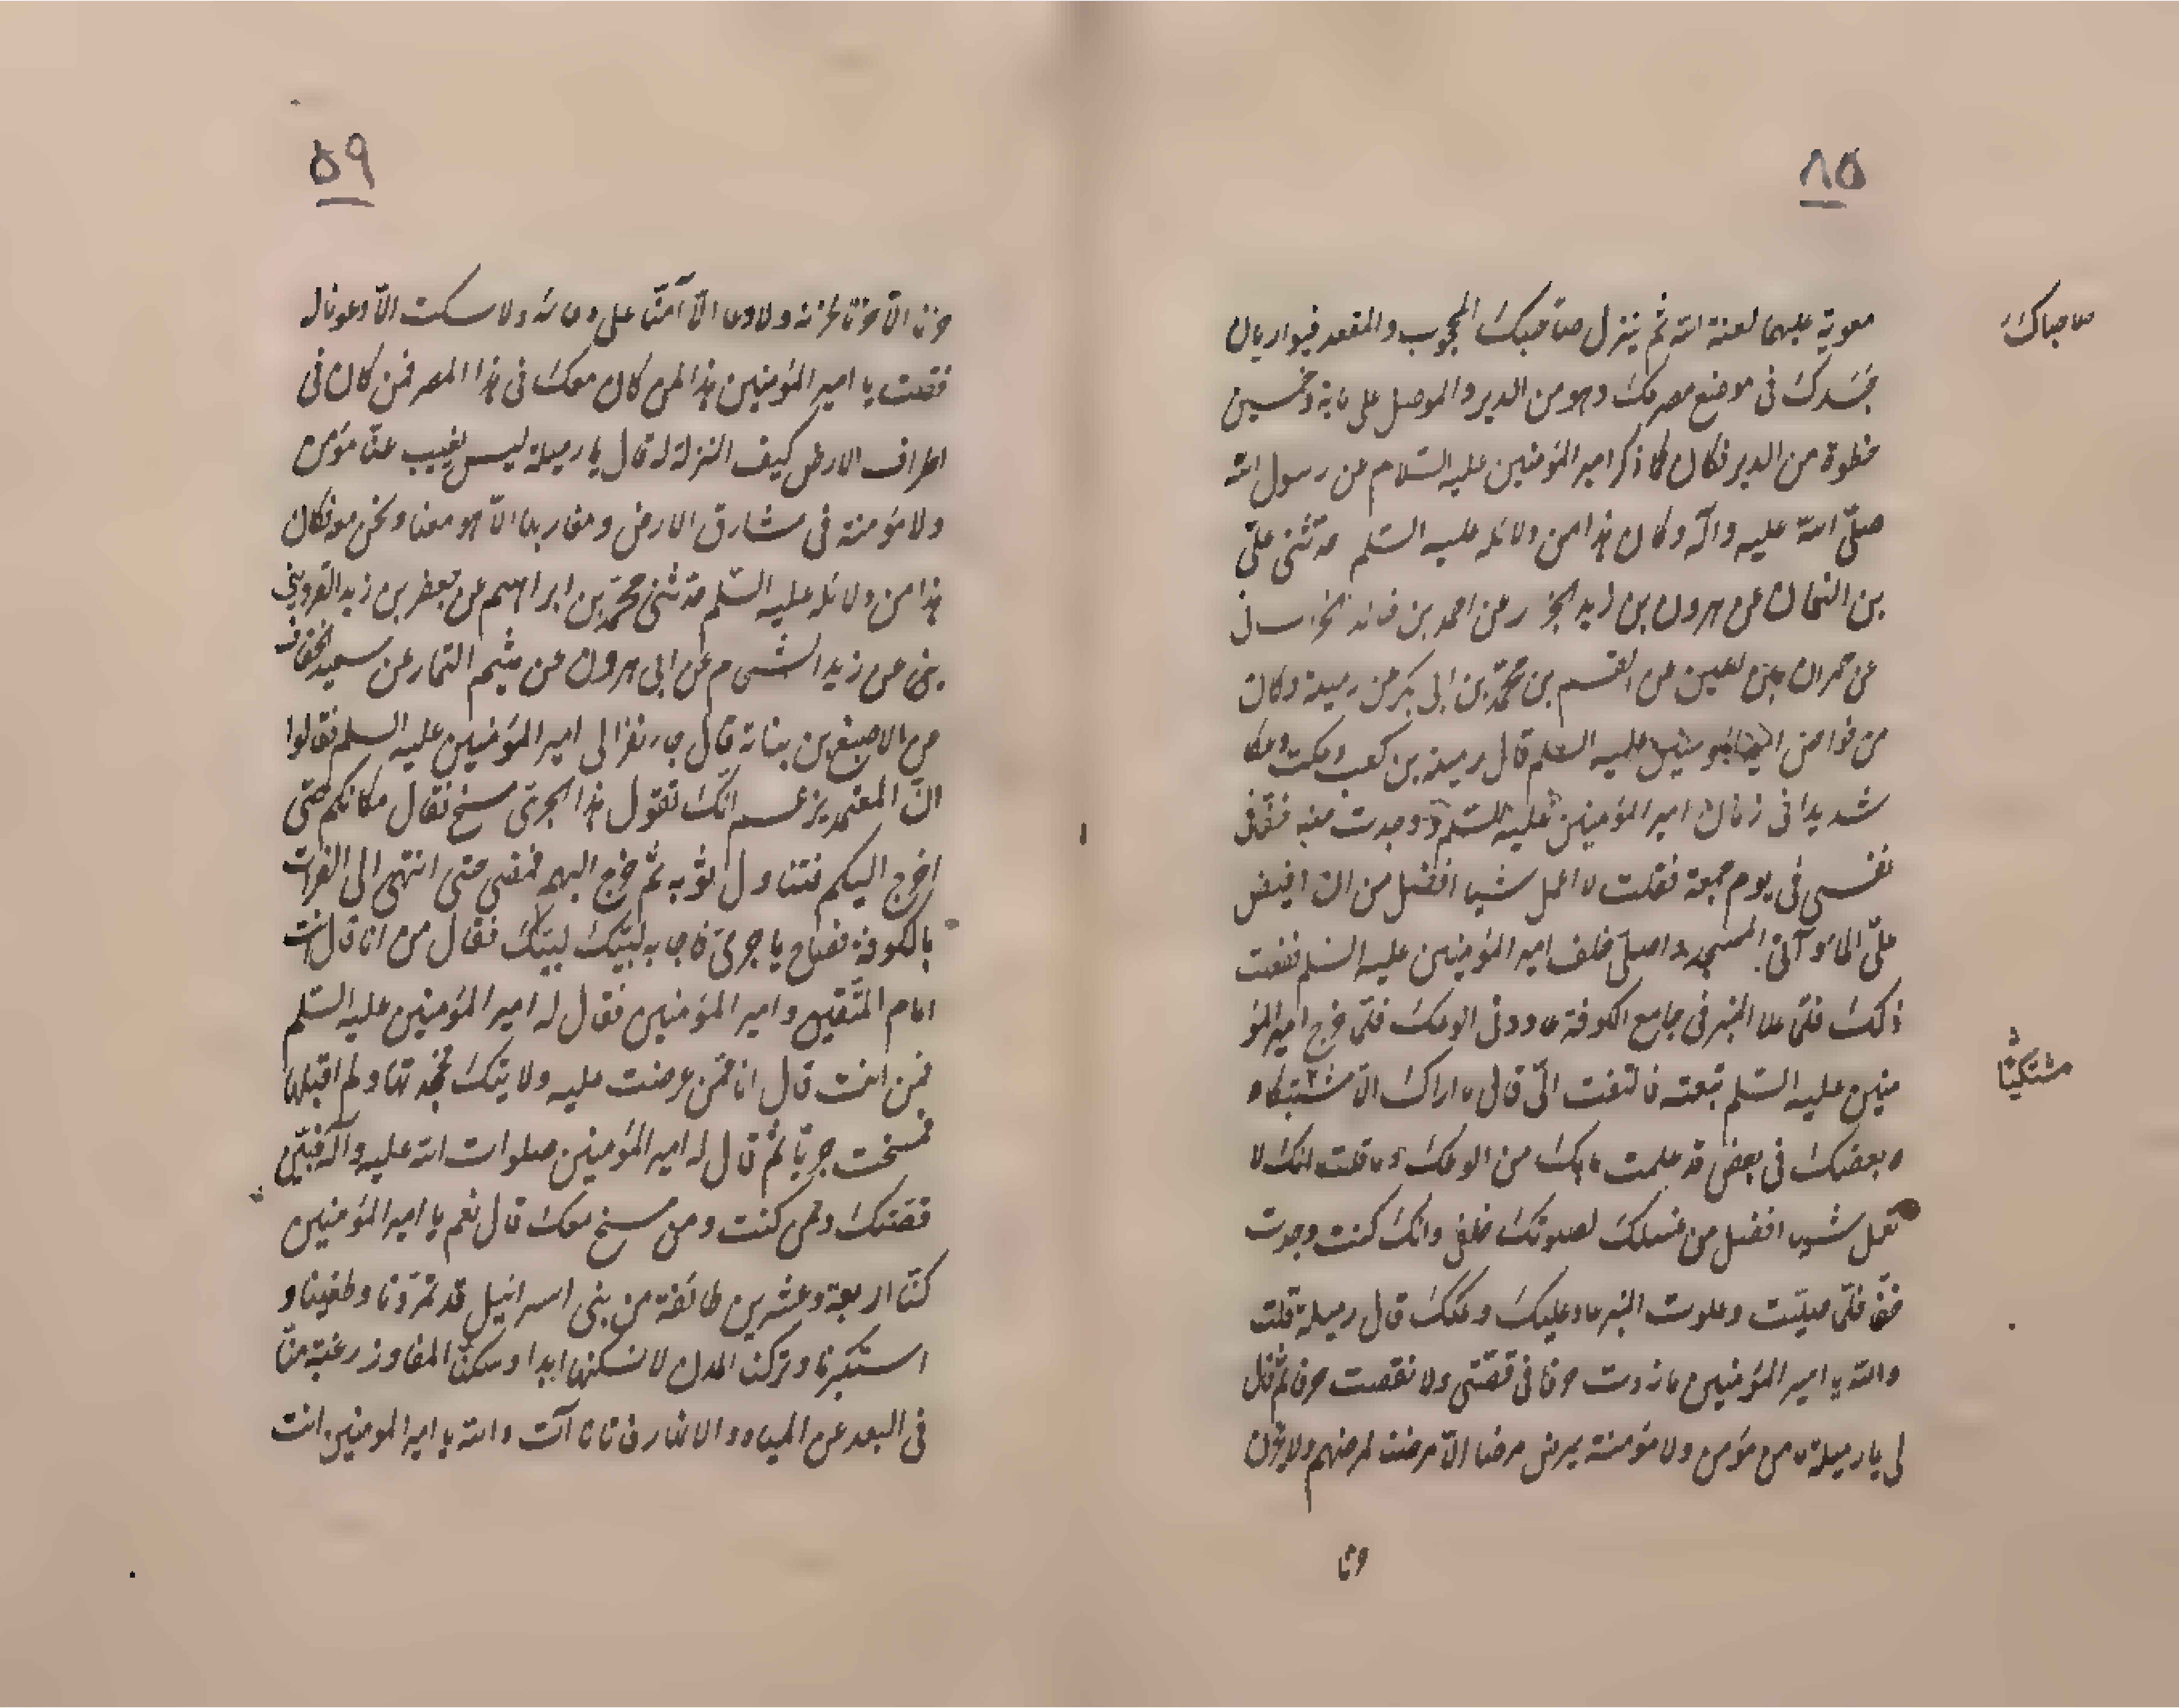 ٨٥
معوية عليهما لعنة الله ثم ينزل صاحبك المحجوب والمقعد فيواريان
صاحباك
جسدك في موضع مصرعك وهو من الدير والموصل على ماية وخمسين
خطوة من الدير فكان كما ذكر امير المؤمنين عليه السلام عن رسول الله
صلى الله عليه واله وكان هذا من دلائله عليه السلم حدثنى على
بن النعمان عن هرون بن يزيد الخزر عن احمد بن خالد
عن حمران بن اعين عن القسم بن محمد بن ابى بكر عن رميلة وكان
من خواص امير المومنين عليه السلم قال رميلة بن كعب وعكت وعكا
شديدا في زمان امير المؤمنين عليه السلم ووجدت منه خفة في
نفسى في يوم جمعة فقلت لا اعمل شيا افضل من ان افيض
على الماء وآتى المسجد واصلى خلف امير المؤمنين عليه السلم ففعلت
ذلك فلما علا المنبر في جامع الكوفة عاودنى الوعك فلما خرج امير المؤ
منين عليه السلم تبعته فالتفت الى قال ما اراك الا مشتبكا و
مشتكيا
وبعضك في بعض قد علمت ما بك من الوعك وما قلت انك لا
تعمل شيا افضل من غسلك لصلوتك خلفى وانك كنت وجدت
خفا فلما صليت وعلوت المنبر عاد عليك وعكك قال رميلة قلت
والله يا امير المؤمنين ما زدت حرفا في قصتى ولا نقصت حرفا ثم قال
لى يا رميلة ما من مؤمن ولا مؤمنة يمرض مرضا الا مرضنا لمرضهم ولا يحزن
٥٩
حزنا الا حزنا لحزنه ولا دعا الا آمنا على دعائه ولا سكت الا دعونا له
فقلت يا امير المؤمنين هذا لمن كان معك في هذا المصر فمن كان في
اطراف الارض كيف المنزلة له قال يا رميلة ليس يغيب عنا مؤمن
ولا مؤمنة في مشارق الارض ومغاربها الا هو معنا ونحن معه فكان
هذا من دلائله عليه السلم حدثنى محمد بن ابراهيم عن جعفر بن زيد القزوينى
عن زيد الشحام عن ابى هرون عن ميثم التمار عن سعيد الخفاف
عن الاصبغ بن نباتة قال جاء نفر الى امير المؤمنين عليه السلم فقالوا
ان المعتمد يزعم انك تقول هذا الجرى مسخ فقال مكانكم حتى
اخرج اليكم فتناول ثوبه ثم خرج اليهم فمضى حتى انتهى الى الفرات
بالكوفة فصاح يا جرى فاجابه لبيك لبيك فقال من انا قال انت
امام المتقين وامير المؤمنين فقال له امير المؤمنين عليه السلم
فمن انت قال انا ممن عرضت عليه ولايتك فجحدتها ولم اقبلها
فمسخت جريا ثم قال له امير المؤمنين صلوات الله عليه وآله فبين
قصتك وممن كنت ومن مسخ معك قال نعم يا امير المؤمنين
كنا اربعة وعشرين طائفة من بنى اسرائيل قد تمردنا وطغينا و
استكبرنا وتركنا المدن لا نسكنها ابدا وسكنا المفاوز رغبة منا
في البعد عن المياه والانهار فاتانا آت والله يا امير المومنين انت